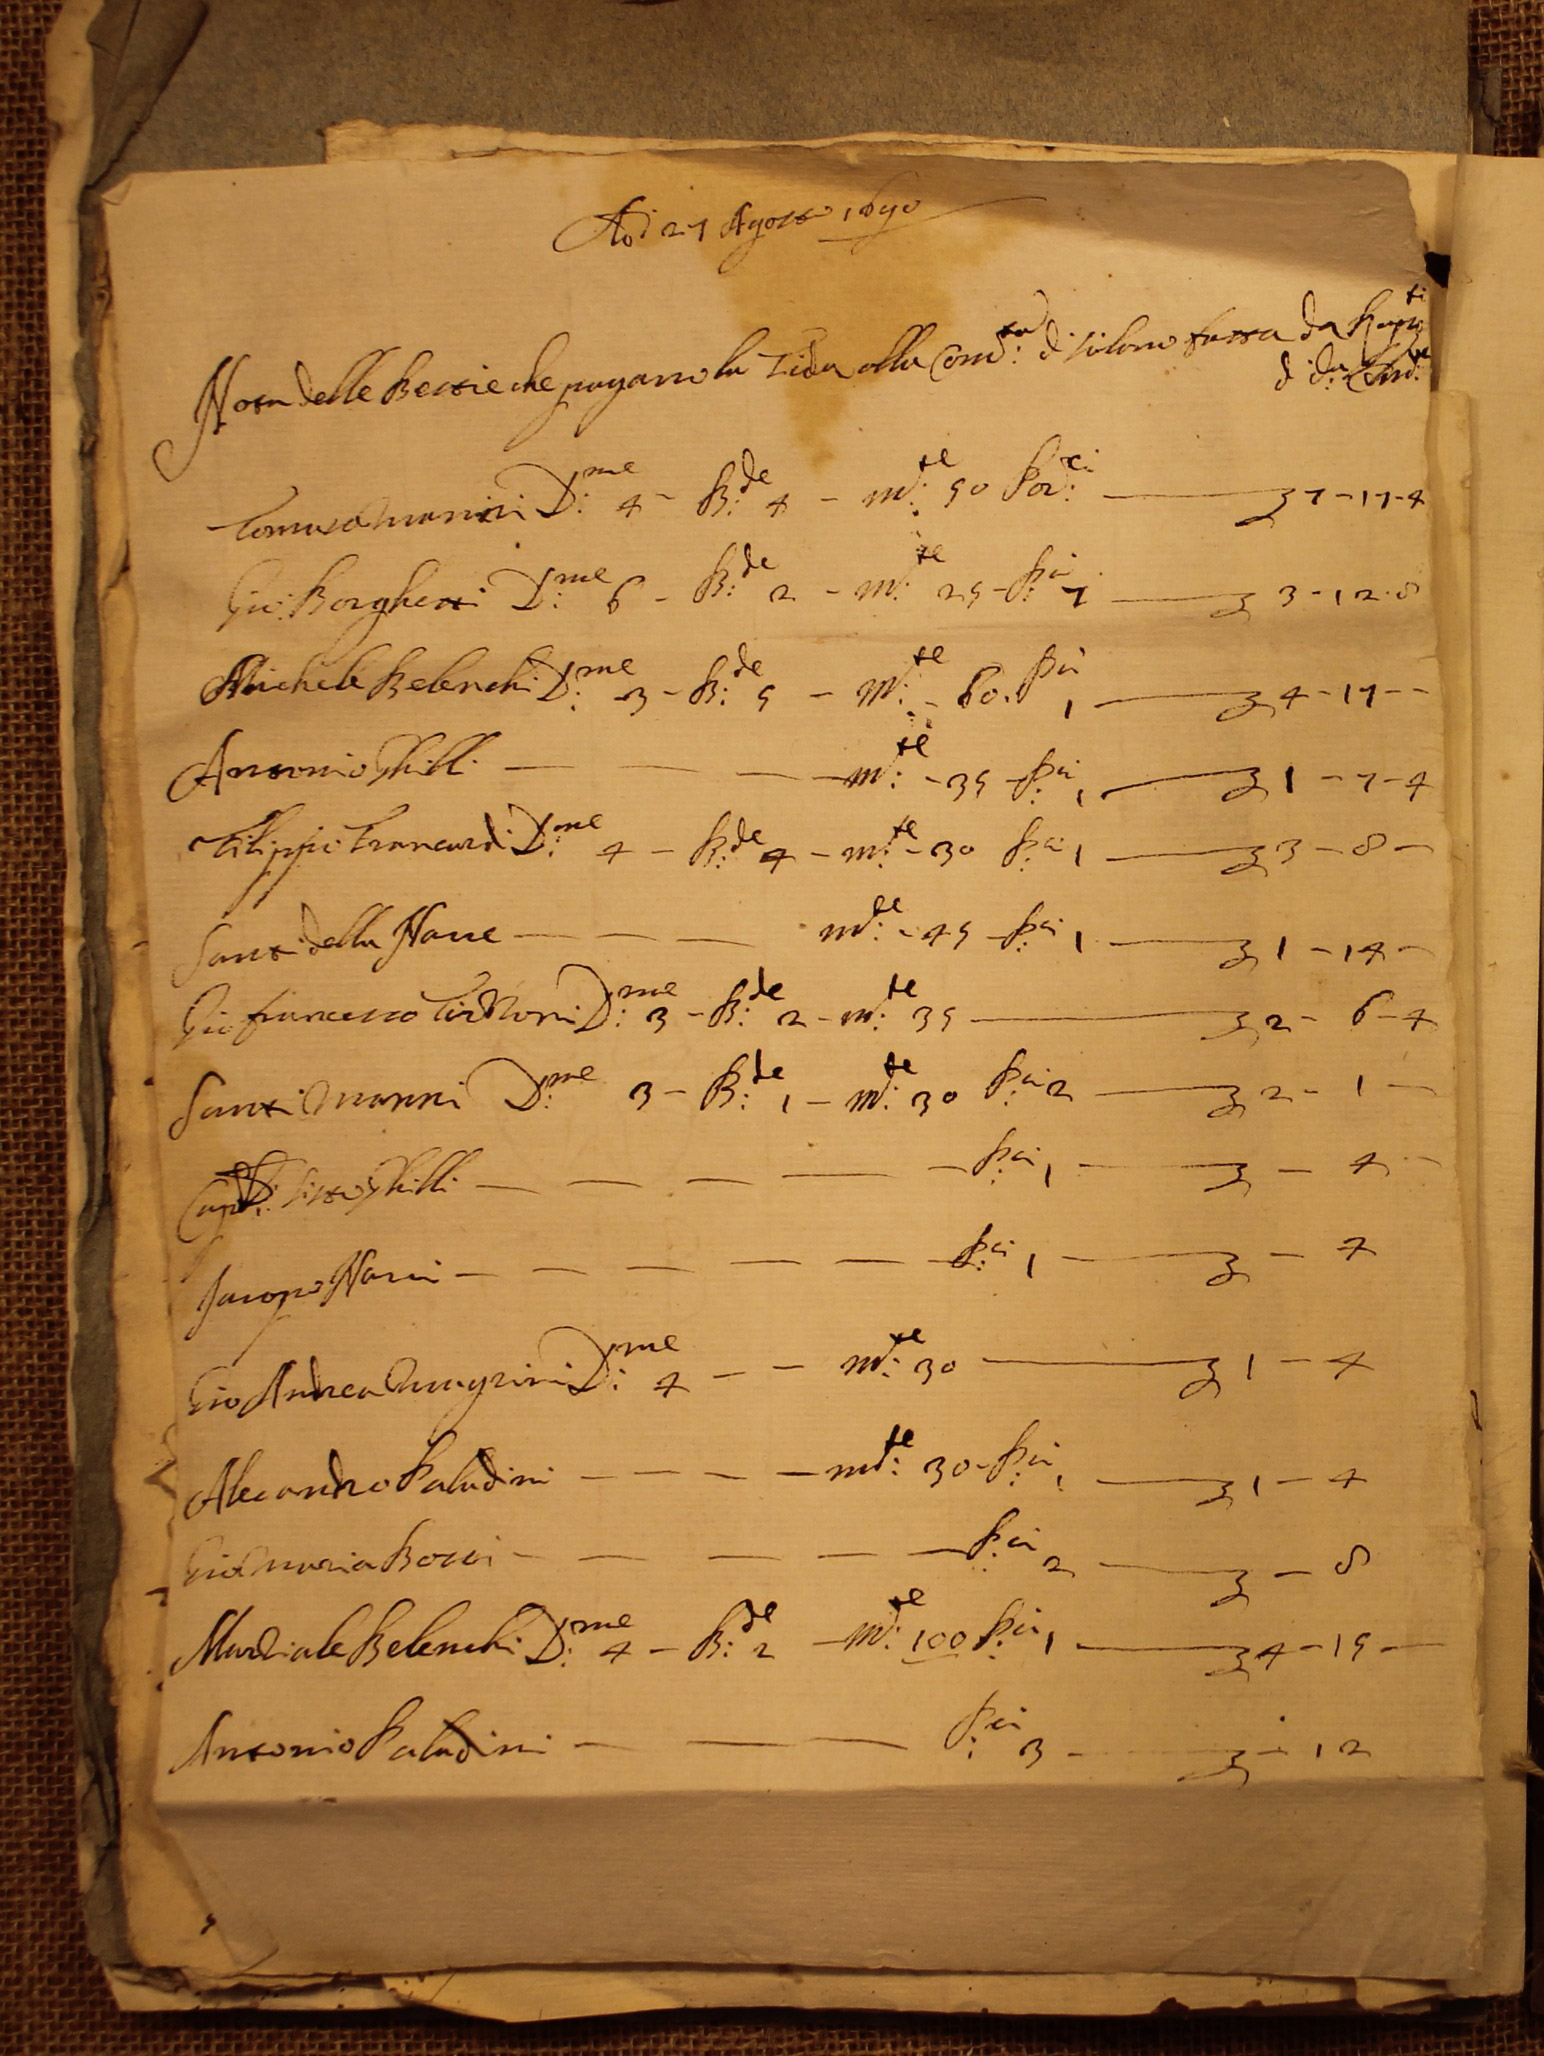 Adi 27 Agosto 1690
Nota delle Bestie che pagano la Fida alla Com:tà di fatta da
d d:a Com:tà
Tomaso Manni D:me 4 - B:de 4 - m:te 50 Por:ci — 7-17-4
Gio: Borghesi D:me 6 - B:de 2 - m:te 25 - P:ci 7 — 3-12-8
Michele Belenchi D:me 3 - B:de 5 - m:te - 60. P:ci 1 — 4-17--
Antonio Ghilli — — — m:te - 35 - P:ci 1 — 1-7-4
Filippo Francardi D:me 4 - B:de 4 - m:te - 30 P:ci 1 — 3-8-
Santi della Nave — — — m:te - 45 - P:ci 1 — 1-14-
Gio francesco D:me 3 - B:de 2 - m:te 35 — 2-6-4
Santi Manni D:me 3 - B:de 1 - m:te 30 P:ci 2 — 2-1-
Sisto Ghilli — — — — — P:ci 1 — - 4 -
Jacopo Nanni — — — — — P:ci 1 — - 4
Gio Andrea Magrini D:me 4 - - m:te 30 — 1-4
Alesandro Paladini — — — — m:te 30 - P:ci 1 — 1-4
Gio Maria Bocci — — — — — P:ci 2 — - 8
Martiale Belenchi D:me 4 - B:de 2 - m:te 100 P:ci 1 — 4-15-
Antonio Paladini — — — P:ci 3 - — - 12